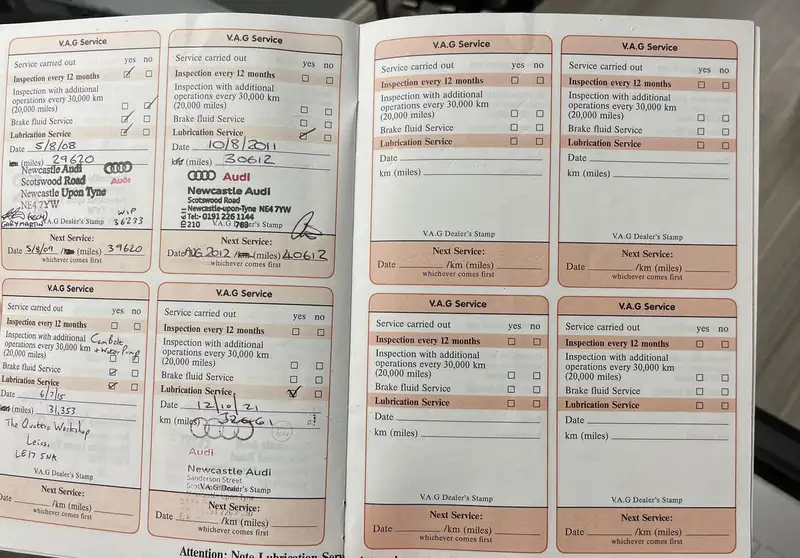 V.A.G Service
Service carried out yes no
Inspection every 12 months
Inspection with additional
operations every 30,000 km
(20,000 miles)
Brake fluid Service
Lubrication Service
Date 5/8/08
(miles) 29620
Newcastle Audi
Scotswood Road Audi
Newcastle Upon Tyne
NE4 7YW
WIP
GARY MARTIN (TECH) V.A.G Dealer's Stamp 36233
Next Service:
Date 5/8/09 /km (miles) 39620
whichever comes first
V.A.G Service
Service carried out yes no
Inspection every 12 months
Inspection with additional
operations every 30,000 km
(20,000 miles)
Brake fluid Service
Lubrication Service
Date 10/8/2011
km (miles) 30612
Audi
Newcastle Audi
Scotswood Road
Newcastle-upon-Tyne NE4 7YW
Tel:- 0191 226 1144
210 V.A.G Dealer's Stamp
Next Service:
Date AUG 2012 /km (miles) 40612
whichever comes first
V.A.G Service
Service carried out yes no
Inspection every 12 months
Inspection with additional Cambelt
operations every 30,000 km + Water Pump
(20,000 miles)
Brake fluid Service
Lubrication Service
Date 6/7/15
(miles) 31,353
The Quattro Workshop
Leics,
LE17 5NR
V.A.G Dealer's Stamp
Next Service:
Date /km (miles)
whichever comes first
V.A.G Service
Service carried out yes no
Inspection every 12 months
Inspection with additional
operations every 30,000 km
(20,000 miles)
Brake fluid Service
Lubrication Service
Date 12/10/21
km (miles) 32661
Audi
Newcastle Audi
Sanderson Street
V.A.G Dealer's Stamp
Next Service:
Date /km (miles)
whichever comes first
V.A.G Service
Service carried out yes no
Inspection every 12 months
Inspection with additional
operations every 30,000 km
(20,000 miles)
Brake fluid Service
Lubrication Service
Date
km (miles)
V.A.G Dealer's Stamp
Next Service:
Date /km (miles)
whichever comes first
V.A.G Service
Service carried out yes no
Inspection every 12 months
Inspection with additional
operations every 30,000 km
(20,000 miles)
Brake fluid Service
Lubrication Service
Date
km (miles)
V.A.G Dealer's Stamp
Next Service:
Date /km (miles)
whichever comes first
V.A.G Service
Service carried out yes no
Inspection every 12 months
Inspection with additional
operations every 30,000 km
(20,000 miles)
Brake fluid Service
Lubrication Service
Date
km (miles)
V.A.G Dealer's Stamp
Next Service:
Date /km (miles)
whichever comes first
V.A.G Service
Service carried out yes no
Inspection every 12 months
Inspection with additional
operations every 30,000 km
(20,000 miles)
Brake fluid Service
Lubrication Service
Date
km (miles)
V.A.G Dealer's Stamp
Next Service:
Date /km (miles)
whichever comes first
Attention: Note Lubrication